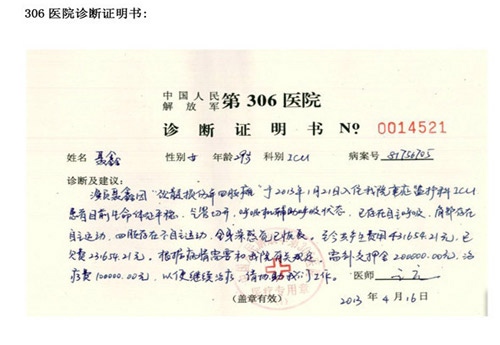 306 医院诊断证明书:
中国人民
解放军 第 306 医院
诊 断 证 明 书 No 0014521
姓名 聂鑫 性别 女 年龄 29岁 科别 ICU 病案号
诊断及建议:
于2013年1月21日入住我院 ICU
患者目前生命体征平稳, 气管切开, 呼吸机辅助呼吸状态, 已存在自主呼吸, 存在
自主运动, 四肢存在不自主运动, 至今共产生费用431654.21元, 已
欠费231654.21元。根据病情需要和我院有关规定, 需补交押金200000.00元, 治
疗费100000.00元, 以便继续治疗, 请协助我们工作。
医疗专用章
医师
(盖章有效)
2013 年 4 月 16 日